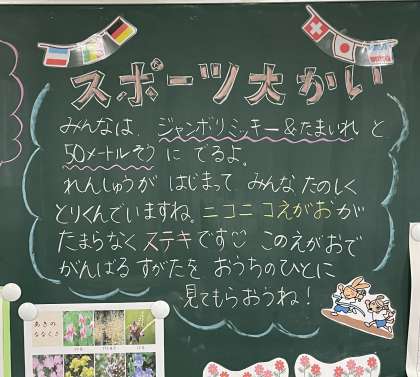 スポーツ大かい
みんなは、ジャンボリミッキー＆たまいれ と
50メートルそう に でるよ。
れんしゅうが はじまって みんな たのしく
とりくんでいますね。ニコニコえがおが
たまらなく ステキです このえがおで
がんばる すがたを おうちのひとに
見てもらおうね！
あきの
ななくさ